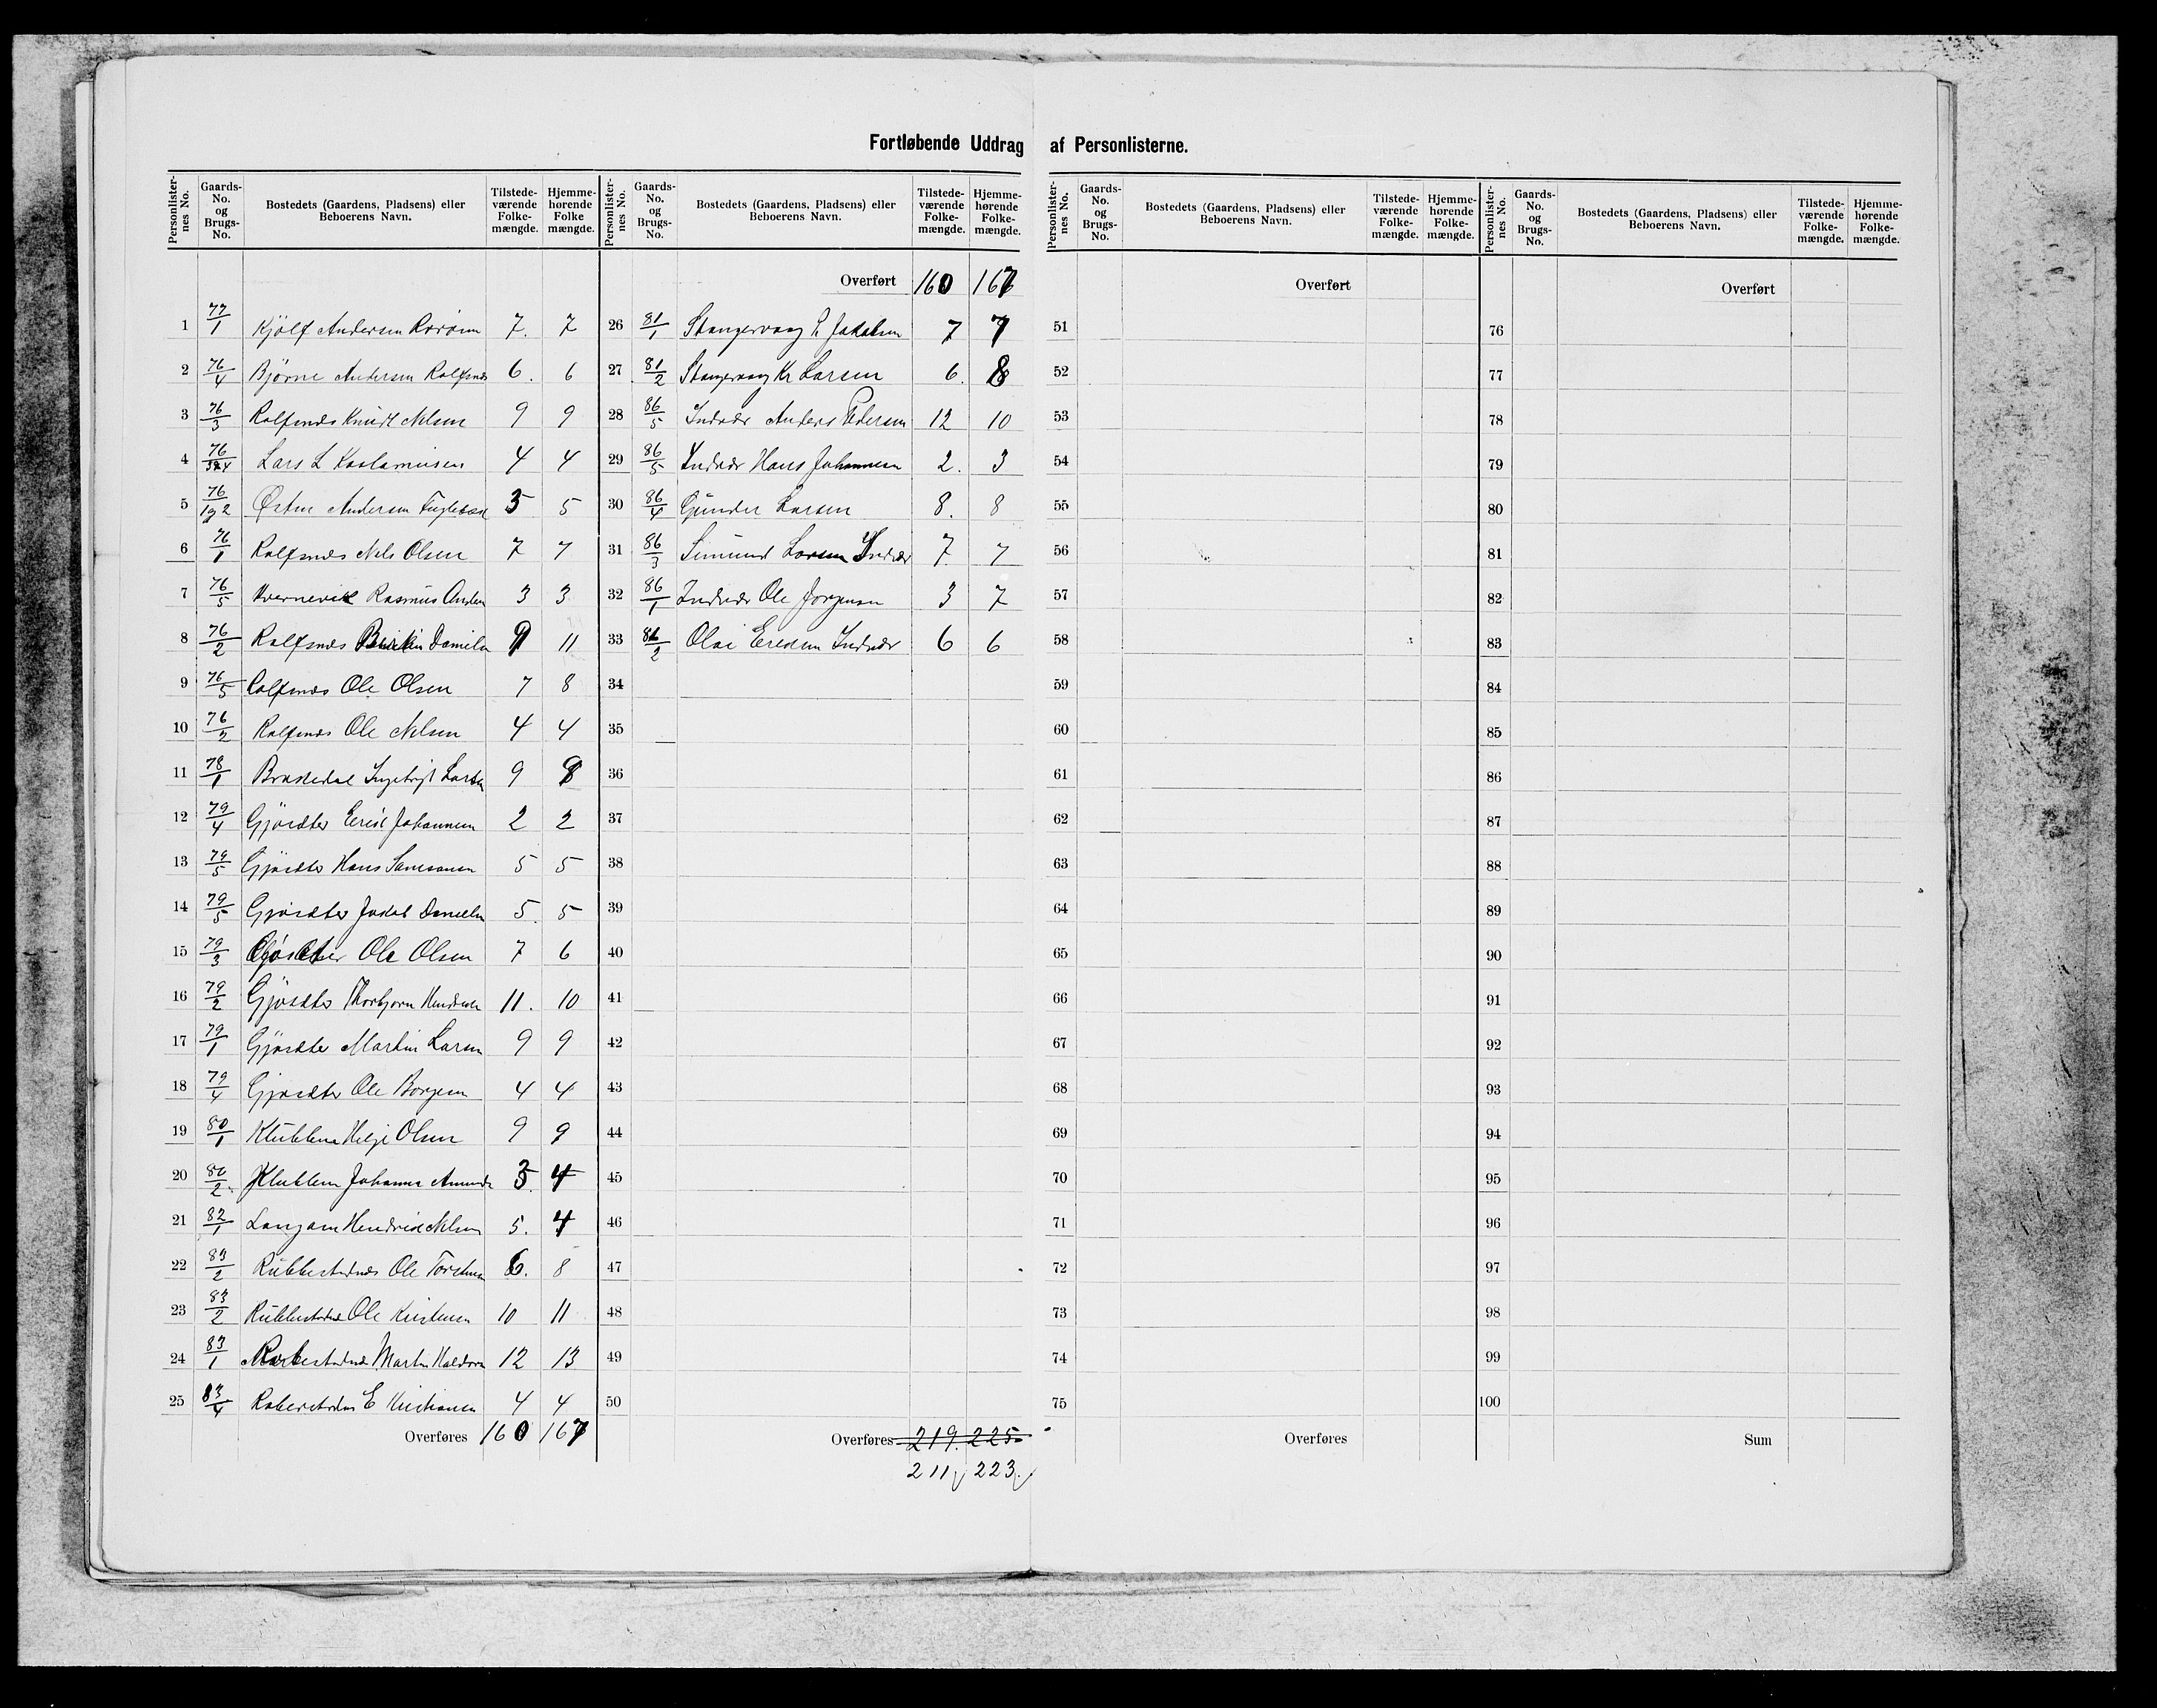 Fortløbende Uddrag af Personlisterne.
Personlister-nes No. Gaards-No. og Brugs-No. Bostedets (Gaardens, Pladsens) eller Beboerens Navn. Tilstede-værende Folke-mængde. Hjemme-hørende Folke mængde.
Personlister-nes No. Gaards-No. og Brugs-No. Bostedets (Gaardens, Pladsens) eller Beboerens Navn. Tilstede-værende Folke-mængde. Hjemme-hørende Folke-mængde.
Personlister-nes No. Gaards-No. og Brugs-No. Bostedets (Gaardens, Pladsens) eller Beboerens Navn. Tilstede-værende Folke-mængde. Hjemme-hørende Folke-mængde.
Personlister-nes No. Gaards-No. og Brugs-No. Bostedets (Gaardens, Pladsens) eller Beboerens Navn. Tilstede-værende Folke-mængde. Hjemme-hørende Folke-mængde.
1 77/1 Kjölf Andersen 7. 7
2 76/4 Bjørne Andersen Rolfsnæs 6. 6
3 76/3 Rolfsnæs Knudt Nilsen 9 9
4 76/ Lars L 4 4
5 76/1g2 Østen Andersen 5
6 76/1 Rolfsnæs Nils Olsen 7 7
7 76/5 Rasmus Anders 3 3
8 76/2 Rolfsnæs 11
9 76/5 Rolfsnæs Ole Olsen 7 8
10 76/2 Rolfsnæs Ole Nilsen 4 4
11 78/1 Larsen 9
12 79/4 Johannesen 2 2
13 79/5 Hans 5 5
14 79/5 Jakob Danielsen 5. 5
15 79/3 Ole Olsen 7 6
16 79/2 Thorbjørn 11. 10
17 79/1 Martin Larsen 9 9
18 79/4 Ole 4 4
19 80/1 Helge Olsen 9 9
20 80/2 Johannes 4
21 82/1 Nilsen 5. 4
22 83/2 Rubbestadnæs Ole 6. 8
23 83/2 Ole 10 11
24 83/1 Martin 12 13
25 83/4 E Kristiansen 4 4
Overføres 160 167
Overført 160 167
26 81/1 Stangervaag 7 7
27 81/2 Stangervaag Kr Larsen 6. 8
28 86/5 Indvær Anders Pedersen 12 10
29 86/5 Indvær Hans Johannesen 2. 3
30 86/4 Gunder Larsen 8. 8
31 86/3 Simund Larsen Indvær 7. 7
32 86/1 Indvær Ole Jørgensen 3 7
33 86/2 Olai Indvær 6 6
34
35
36
37
38
39
40
41
42
43
44
45
46
47
48
49
50
Overføres 219. 225
211 223.
Overført
51
52
53
54
55
56
57
58
59
60
61
62
63
64
65
66
67
68
69
70
71
72
73
74
75
Overføres
Overført
76
77
78
79
80
81
82
83
84
85
86
87
88
89
90
91
92
93
94
95
96
97
98
99
100
Sum